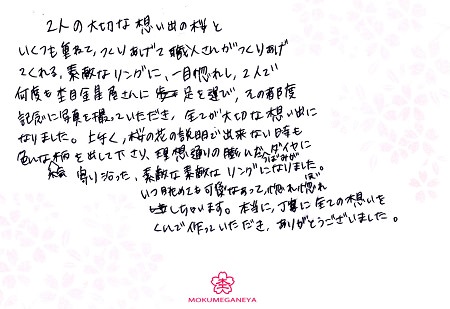 2人の大切な想い出の桜と
いくつも重ねて、つくりあげて職人さんがつくりあげ
てくれる、素敵なリングに、一目惚れし、2人で
何度も杢目金屋さんに足を運び、その都度
記念に写真を撮っていただき、全てが大切な想い出に
なりました。上手く、桜の花の説明が出来ない時も
色んな柄を出して下さり、理想通りの膨らんだダイヤに
つぼみが
寄り沿った、素敵な素敵なリングになりました。
いつ眺めても可愛くて、惚れ惚れ
しちゃいます。本当に、丁寧に全ての想いを
くんで作っていただき、ありがとうございました。
MOKUMEGANEYA